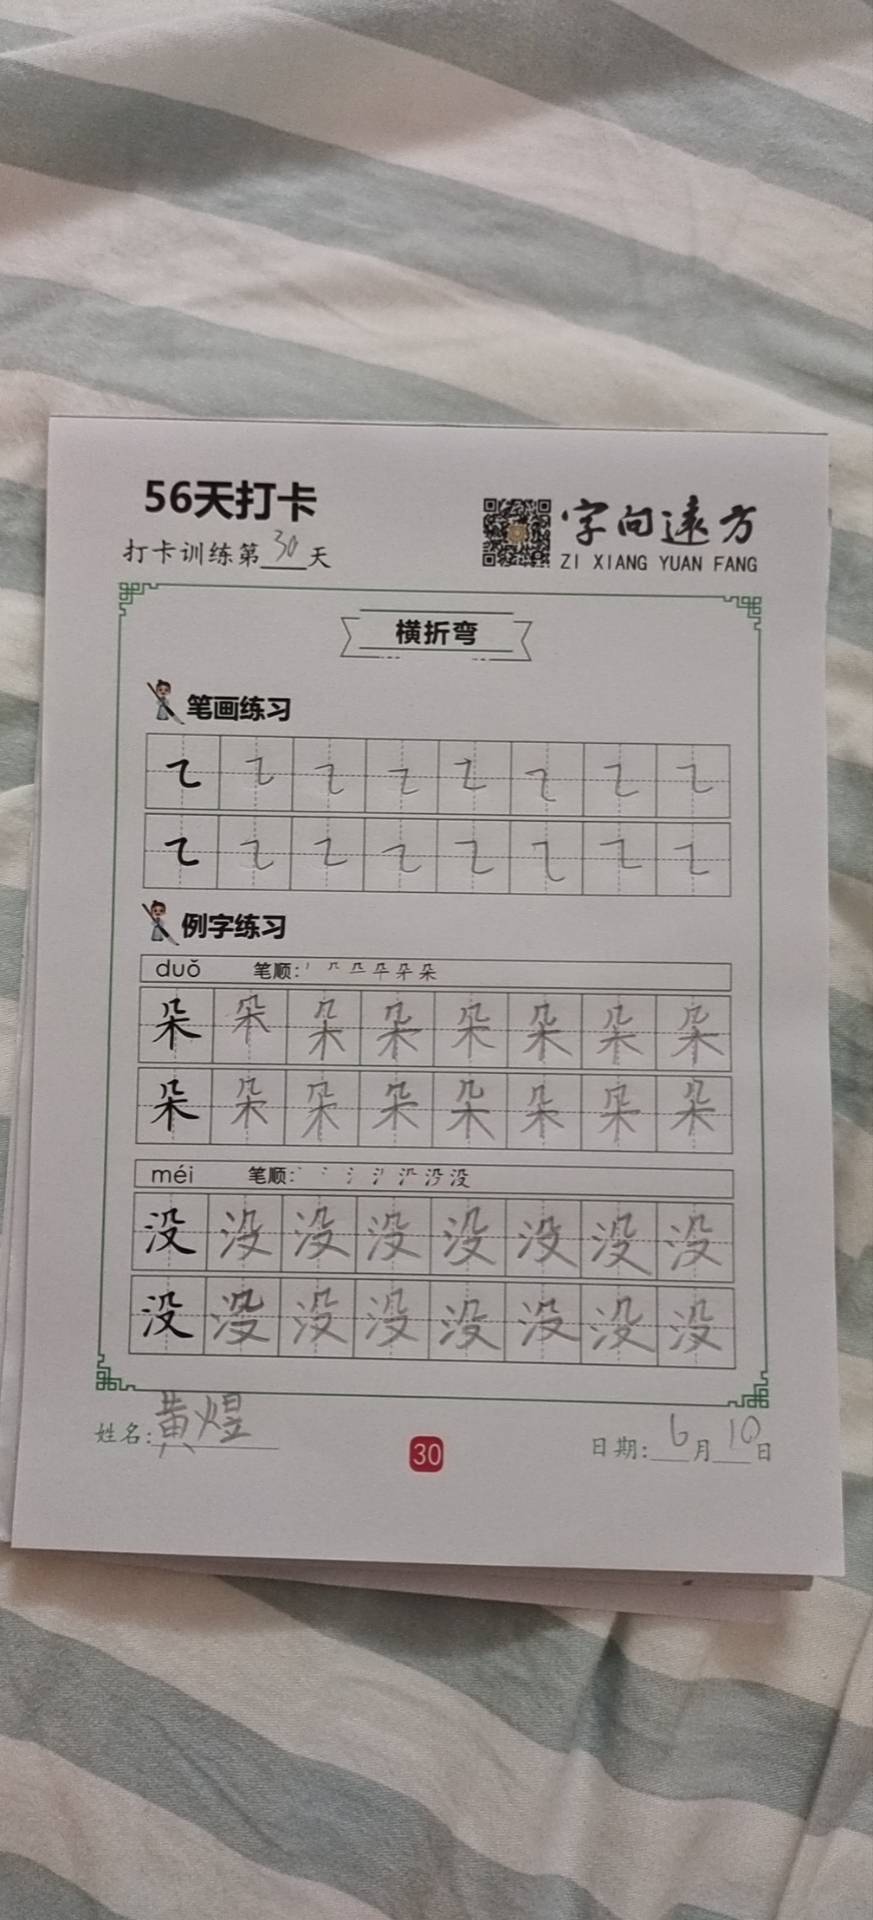 56天打卡
打卡训练第30天
字向远方
ZI XIANG YUAN FANG
横折弯
笔画练习
㇍ ㇍ ㇍ ㇍ ㇍ ㇍ ㇍ ㇍
㇍ ㇍ ㇍ ㇍ ㇍ ㇍ ㇍ ㇍
例字练习
duǒ 笔顺:
朵 朵 朵 朵 朵 朵 朵 朵
朵 朵 朵 朵 朵 朵 朵 朵
méi 笔顺:
没 没 没 没 没 没 没 没
没 没 没 没 没 没 没 没
姓名:黄煜
30
日期:6月10日